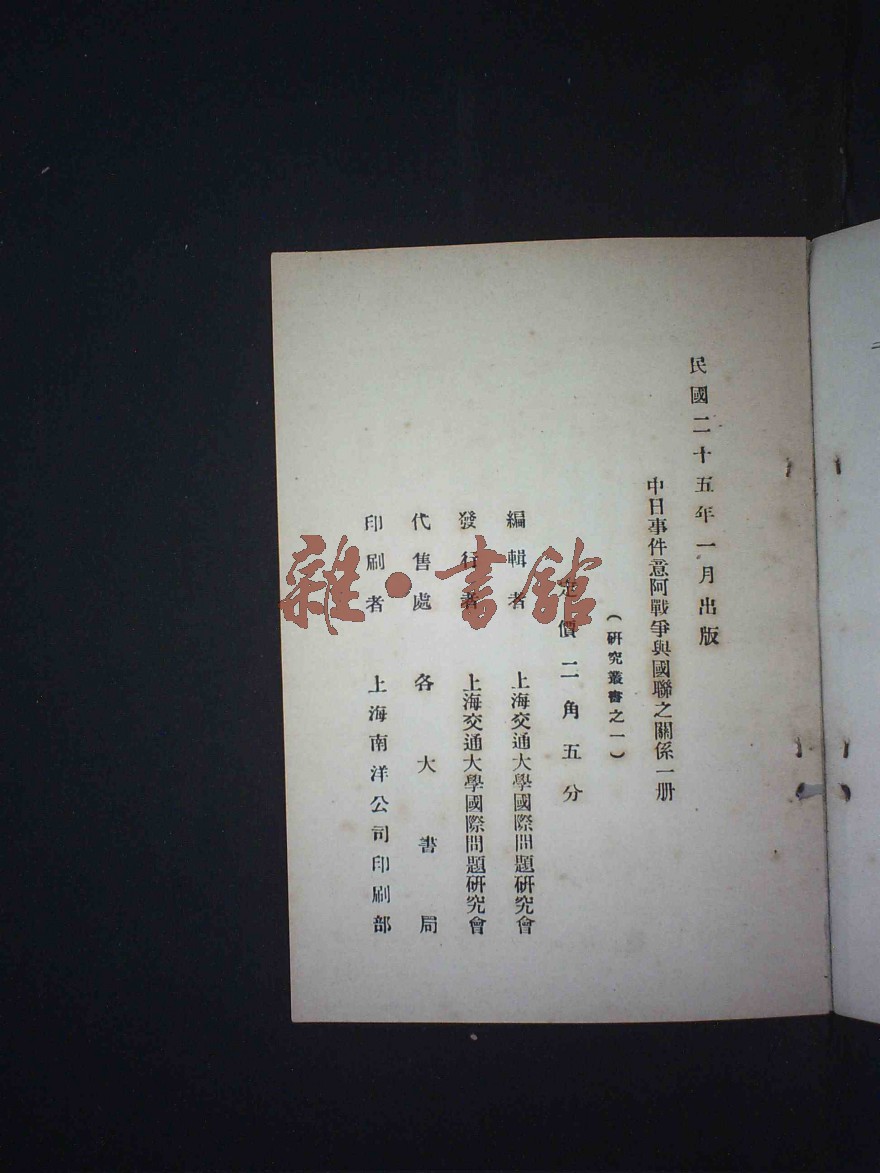 民國二十五年一月出版
中日事件意阿戰爭與國聯之關係一册
(研究叢書之一)
定價二角五分
編輯者 上海交通大學國際問題研究會
發行者 上海交通大學國際問題研究會
代售處 各大書局
印刷者 上海南洋公司印刷部
雜·書館